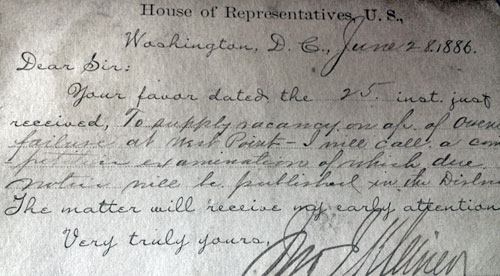 House of Representatives, U. S.,
Washington, D. C., June 28, 1886.
Dear Sir:
Your favor dated the 25. inst. just
received, To supply vacancy on a/c. of
failure at West Point – I will call a com
petitive examination of which due
notice will be published in the
The matter will receive my early attention
Very truly yours,